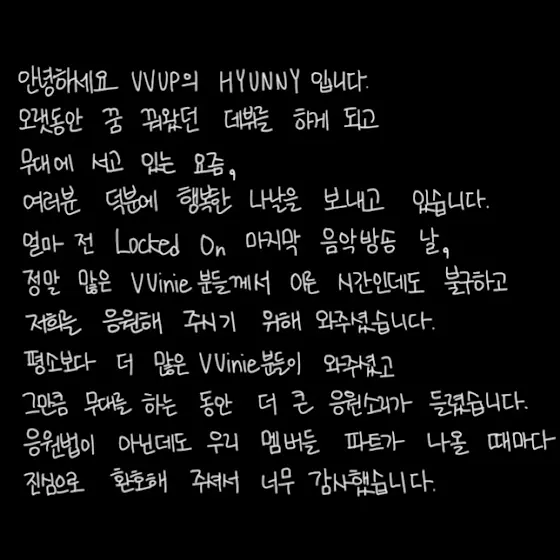 안녕하세요 VVUP의 HYUNNY 입니다.
오랫동안 꿈 꿔왔던 데뷔를 하게 되고
무대에 서고 있는 요즘,
여러분 덕분에 행복한 나날을 보내고 있습니다.
얼마 전 Locked On 마지막 음악방송 날,
정말 많은 VVinie 분들께서 이른 시간인데도 불구하고
저희를 응원해 주시기 위해 와주셨습니다.
평소보다 더 많은 VVinie분들이 와주셨고
그만큼 무대를 하는 동안 더 큰 응원소리가 들렸습니다.
응원법이 아닌데도 우리 멤버들 파트가 나올 때마다
진심으로 환호해 주셔서 너무 감사했습니다.